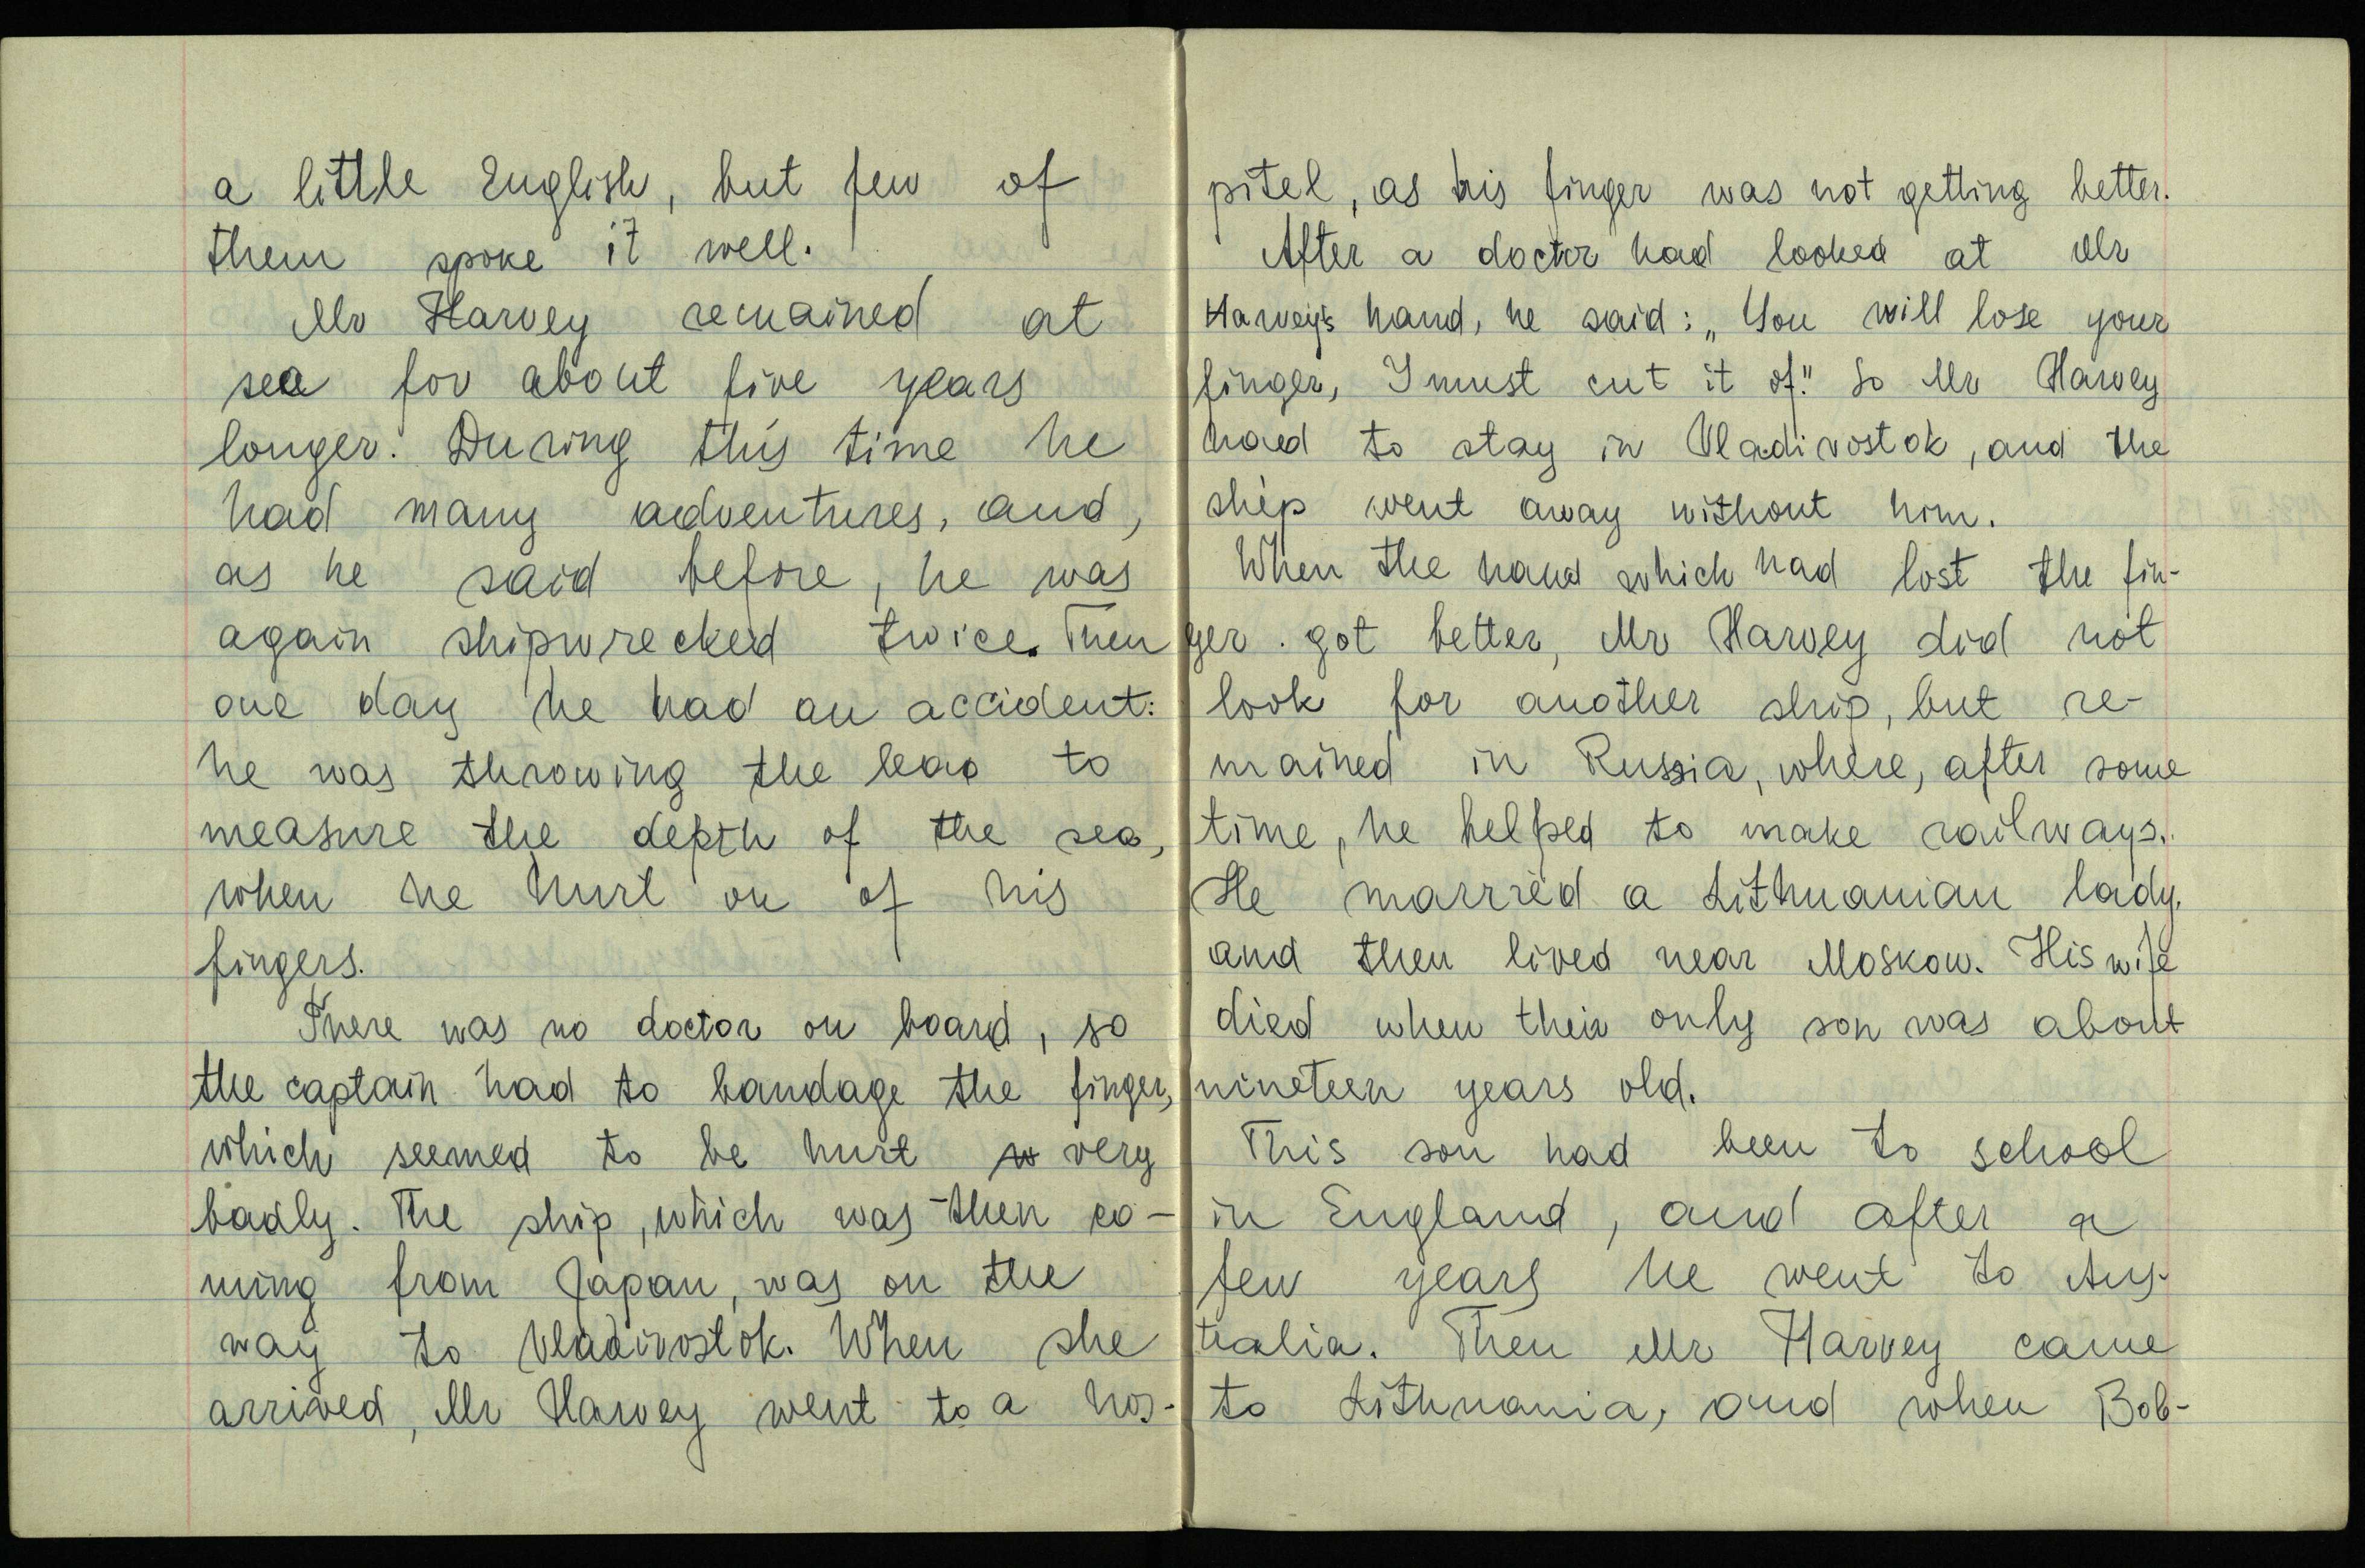 a little English, but few of
them spoke it well.
Mr Harvey remained at
sea for about five years
longer. During this time he
had many adventures, and,
as he said before, he was
again shipwrecked twice. Then
one day he had an accident:
he was throwing the lead to
measure the depth of the sea,
when he hurt on of his
fingers.
There was no doctor on board, so
the captain had to bandage the finger,
which seemed to be hurt very
badly. The ship, which was then co-
ming from Japan, was on the
way to Vladivostok. When she
arrived, Mr Harvey went to a hos-
pitel, as his finger was not getting better.
After a doctor had looked at Mr
Harvey's hand, he said: „You will lose your
finger, I must cut it of." So Mr Harvey
had to stay in Vladivostok, and the
ship went away without him.
When the hand which had lost the fin-
ger . got better, Mr Harvey did not
look for another ship, but re-
mained in Russia, where, after some
time, he helped to make railways.
He married a Lithuanian lady,
and then lived near Moskow. His wife
died when their only son was about
nineteen years old.
This son had been to school
in England, and after a
few years he went to Aus-
tralia. Then Mr Harvey came
to Lithuania, and when Bob-